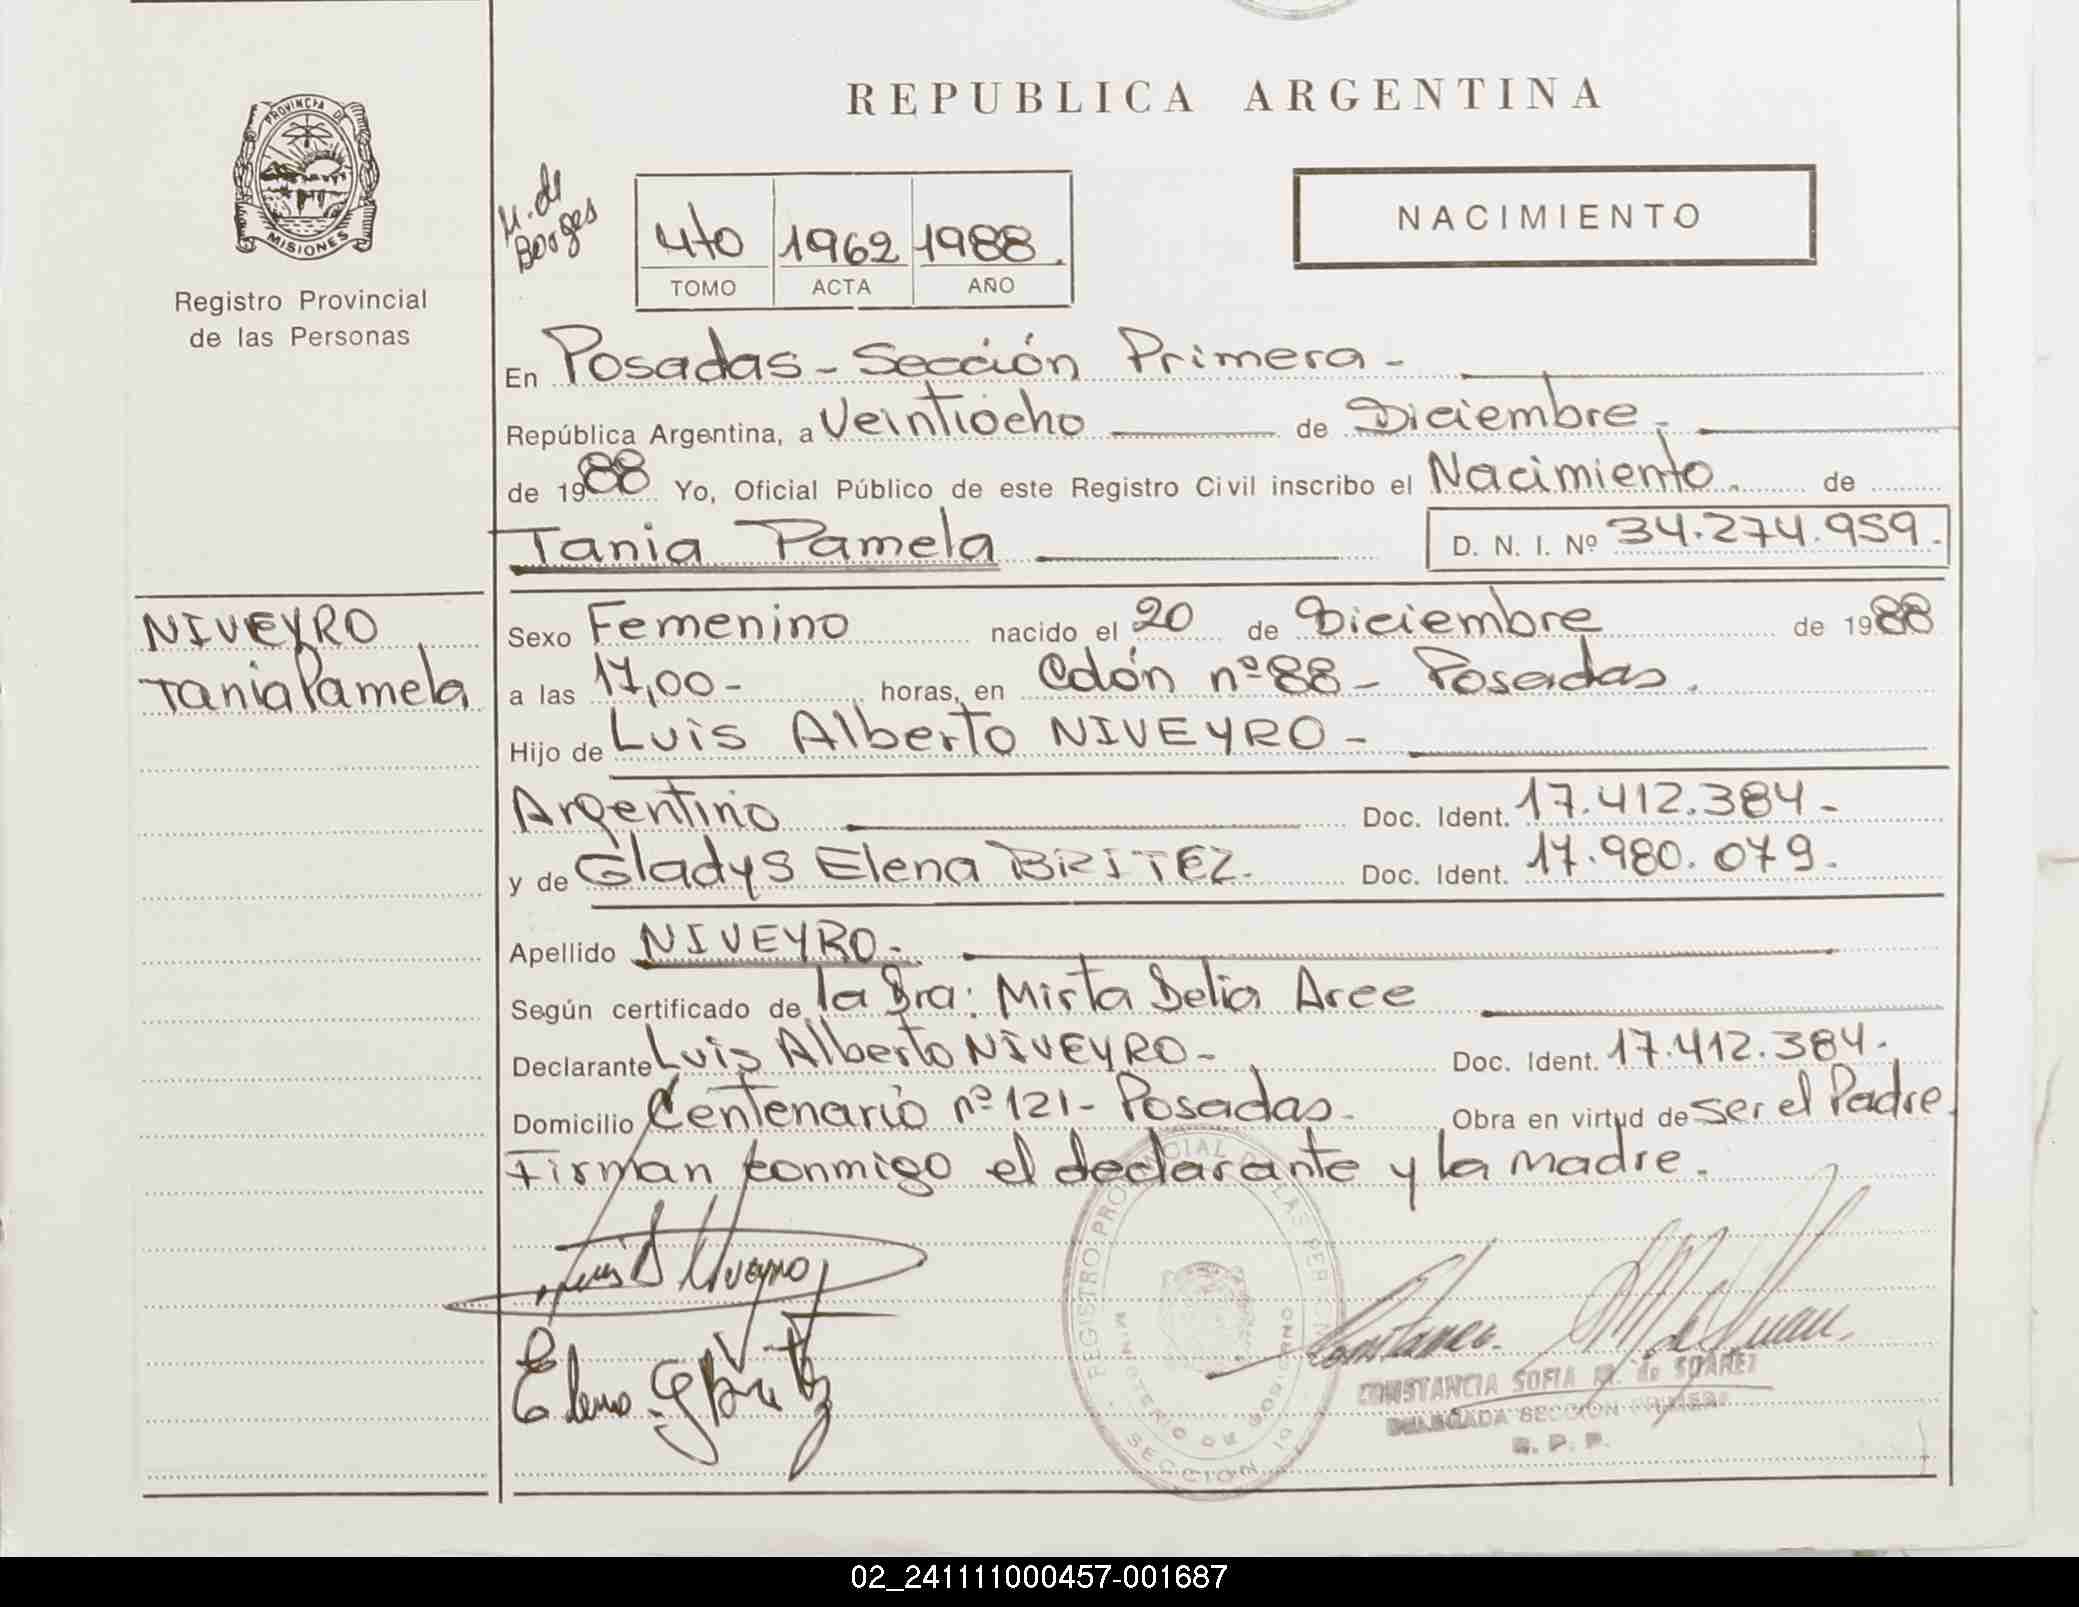 REPUBLICA ARGENTINA
PROVINCIA DE
MISIONES
Registro Provincial
de las Personas
M. de
Borges
4to 1962 1988.
TOMO ACTA AÑO
NACIMIENTO
En Posadas - Sección Primera -
República Argentina, a Veintiocho de Diciembre.
de 1988 Yo, Oficial Público de este Registro Civil inscribo el Nacimiento. de
Tania Pamela D. N. I. Nº 34.274.959.
NIVEYRO
Tania Pamela
Sexo Femenino nacido el 20 de Diciembre de 1988
a las 17,00 - horas, en Colón nº 88 - Posadas.
Hijo de Luis Alberto NIVEYRO -
Argentino Doc. Ident. 17.412.384 -
y de Gladys Elena BRITEZ. Doc. Ident. 17.980.079.
Apellido NIVEYRO -
Según certificado de la Dra: Mirta Delia Arce
Declarante Luis Alberto NIVEYRO - Doc. Ident. 17.412.384.
Domicilio Centenario nº 121 - Posadas - Obra en virtud de ser el Padre.
Firman conmigo el declarante y la madre.
Luis A Niveyro
Elena G Britez
REGISTRO PROVINCIAL DE LAS PERSONAS
MINISTERIO DE GOBIERNO
SECCION 1ª
Constancia M de Suarez
CONSTANCIA SOFIA M. de SUAREZ
DELEGADA SECCION PRIMERA
R. P. P.
02_241111000457-001687